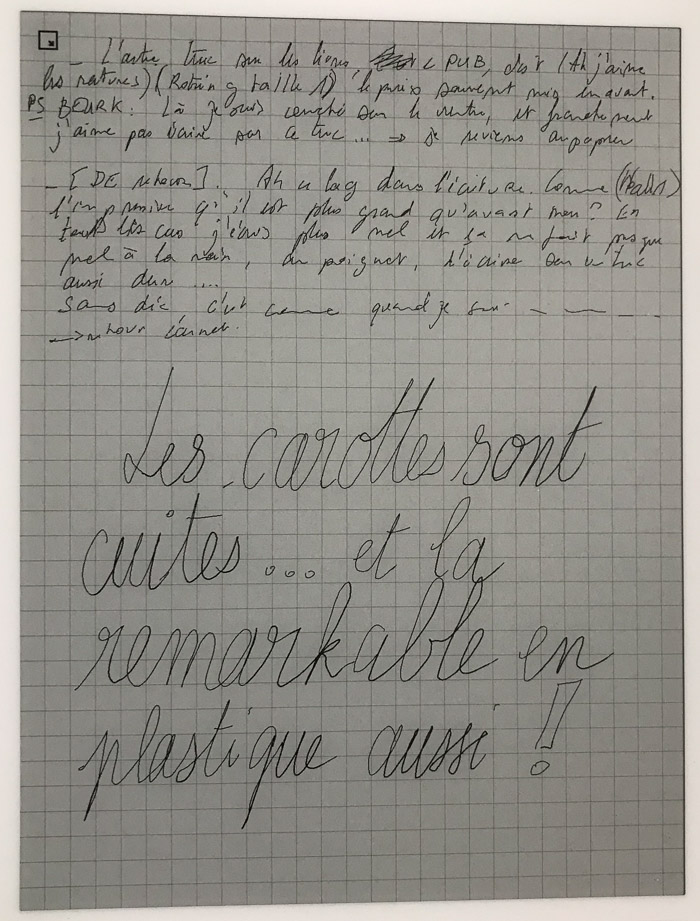 - L'autre truc sur les lignes PUB, (Ah j'aime
les ratures) (Rotring taille 1) souvent mis en avant.
PS BEURK: Là je suis couché sur le ventre, et franchement
j'aime pas écrire sur ce truc... → je reviens au papier
- [DE retour]. Ah ce lag dans l'écriture. Comme
l'impression qu'il est plus grand qu'avant non? En
tout les cas j'écris plus mal et ça me fait presque
mal à la main, au poignet, d'écrire sur ce truc
aussi dur ....
Sans dec, c'est comme quand je suis
→ retour carnet.
Les carottes sont
cuites... et la
remarkable en
plastique aussi !